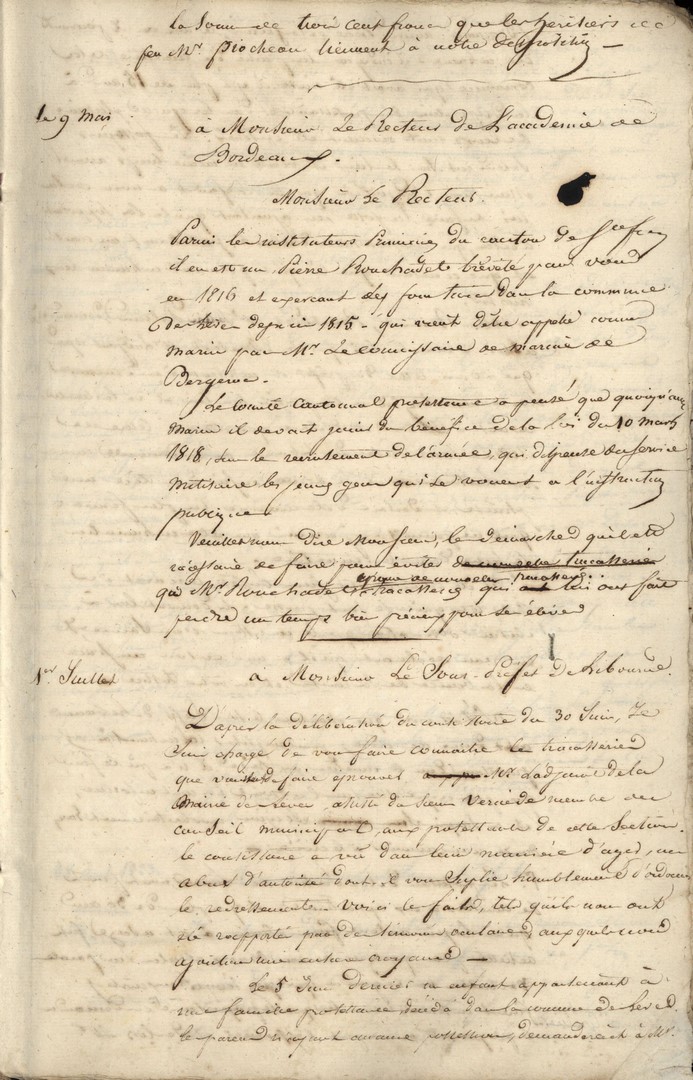 la somme de trois cent francs que les héritiers de
feu Mr. piocheau tiennent à notre disposition —
le 9 Mai
à Monsieur Le Recteur de L'academie de
Bordeaux.
Monsieur Le Recteur.
Parmi les instituteurs Primaires du canton de
il en est un Pierre Rouchade breveté par vous
en 1816 et exercant ses fonctions dans la commune
de depuis 1815 - qui vient d'être appelé comme
marin par Mr. Le commissaire de marine de
Bergerac.
Le comité Cantonnal protestant a pensé que quoiqu'ancien
marin il devait jouir du bénéfice de la loi du 10 mars
1818, sur le recrutement de l'armée, qui dispense du service
militaire les jeunes gens qui se vouent a l'instruction
publique.
Veuillez nous dire Monsieur, les demarches qu'il est
nécessaire de faire pour éviter de nouvelles tracasseries
que Mr. Rouchade tracasseries qui ont lui ont fait
perdre un temps bien précieux pour ses élèves
1er. Juillet
à Monsieur Le Sous-Préfet de Libourne.
D'après la délibération du consistoire du 30 Juin, Je
suis chargé de vous faire connaitre les tracasseries
que vient de faire éprouver Mr. Ladjoint de la
Mairie de Lèves, assisté du sieur membre du
conseil municipal, aux protestants de cette Section.
le consistoire a vu dans leur manière d'agir, un
abus d'autorité dont il vous suplie humblement d'ordonner
le redressement. Voici les faits, tels qu'ils nous ont
été rapportés par des temoins oculaires, auxquels nous
ajoutons une entière croyance —
Le 5 Juin dernier un enfant appartenant à
une famille protestante décéda dans la commune de Lèves.
les parens n'ayant aucune possession, demanderent à Mr.